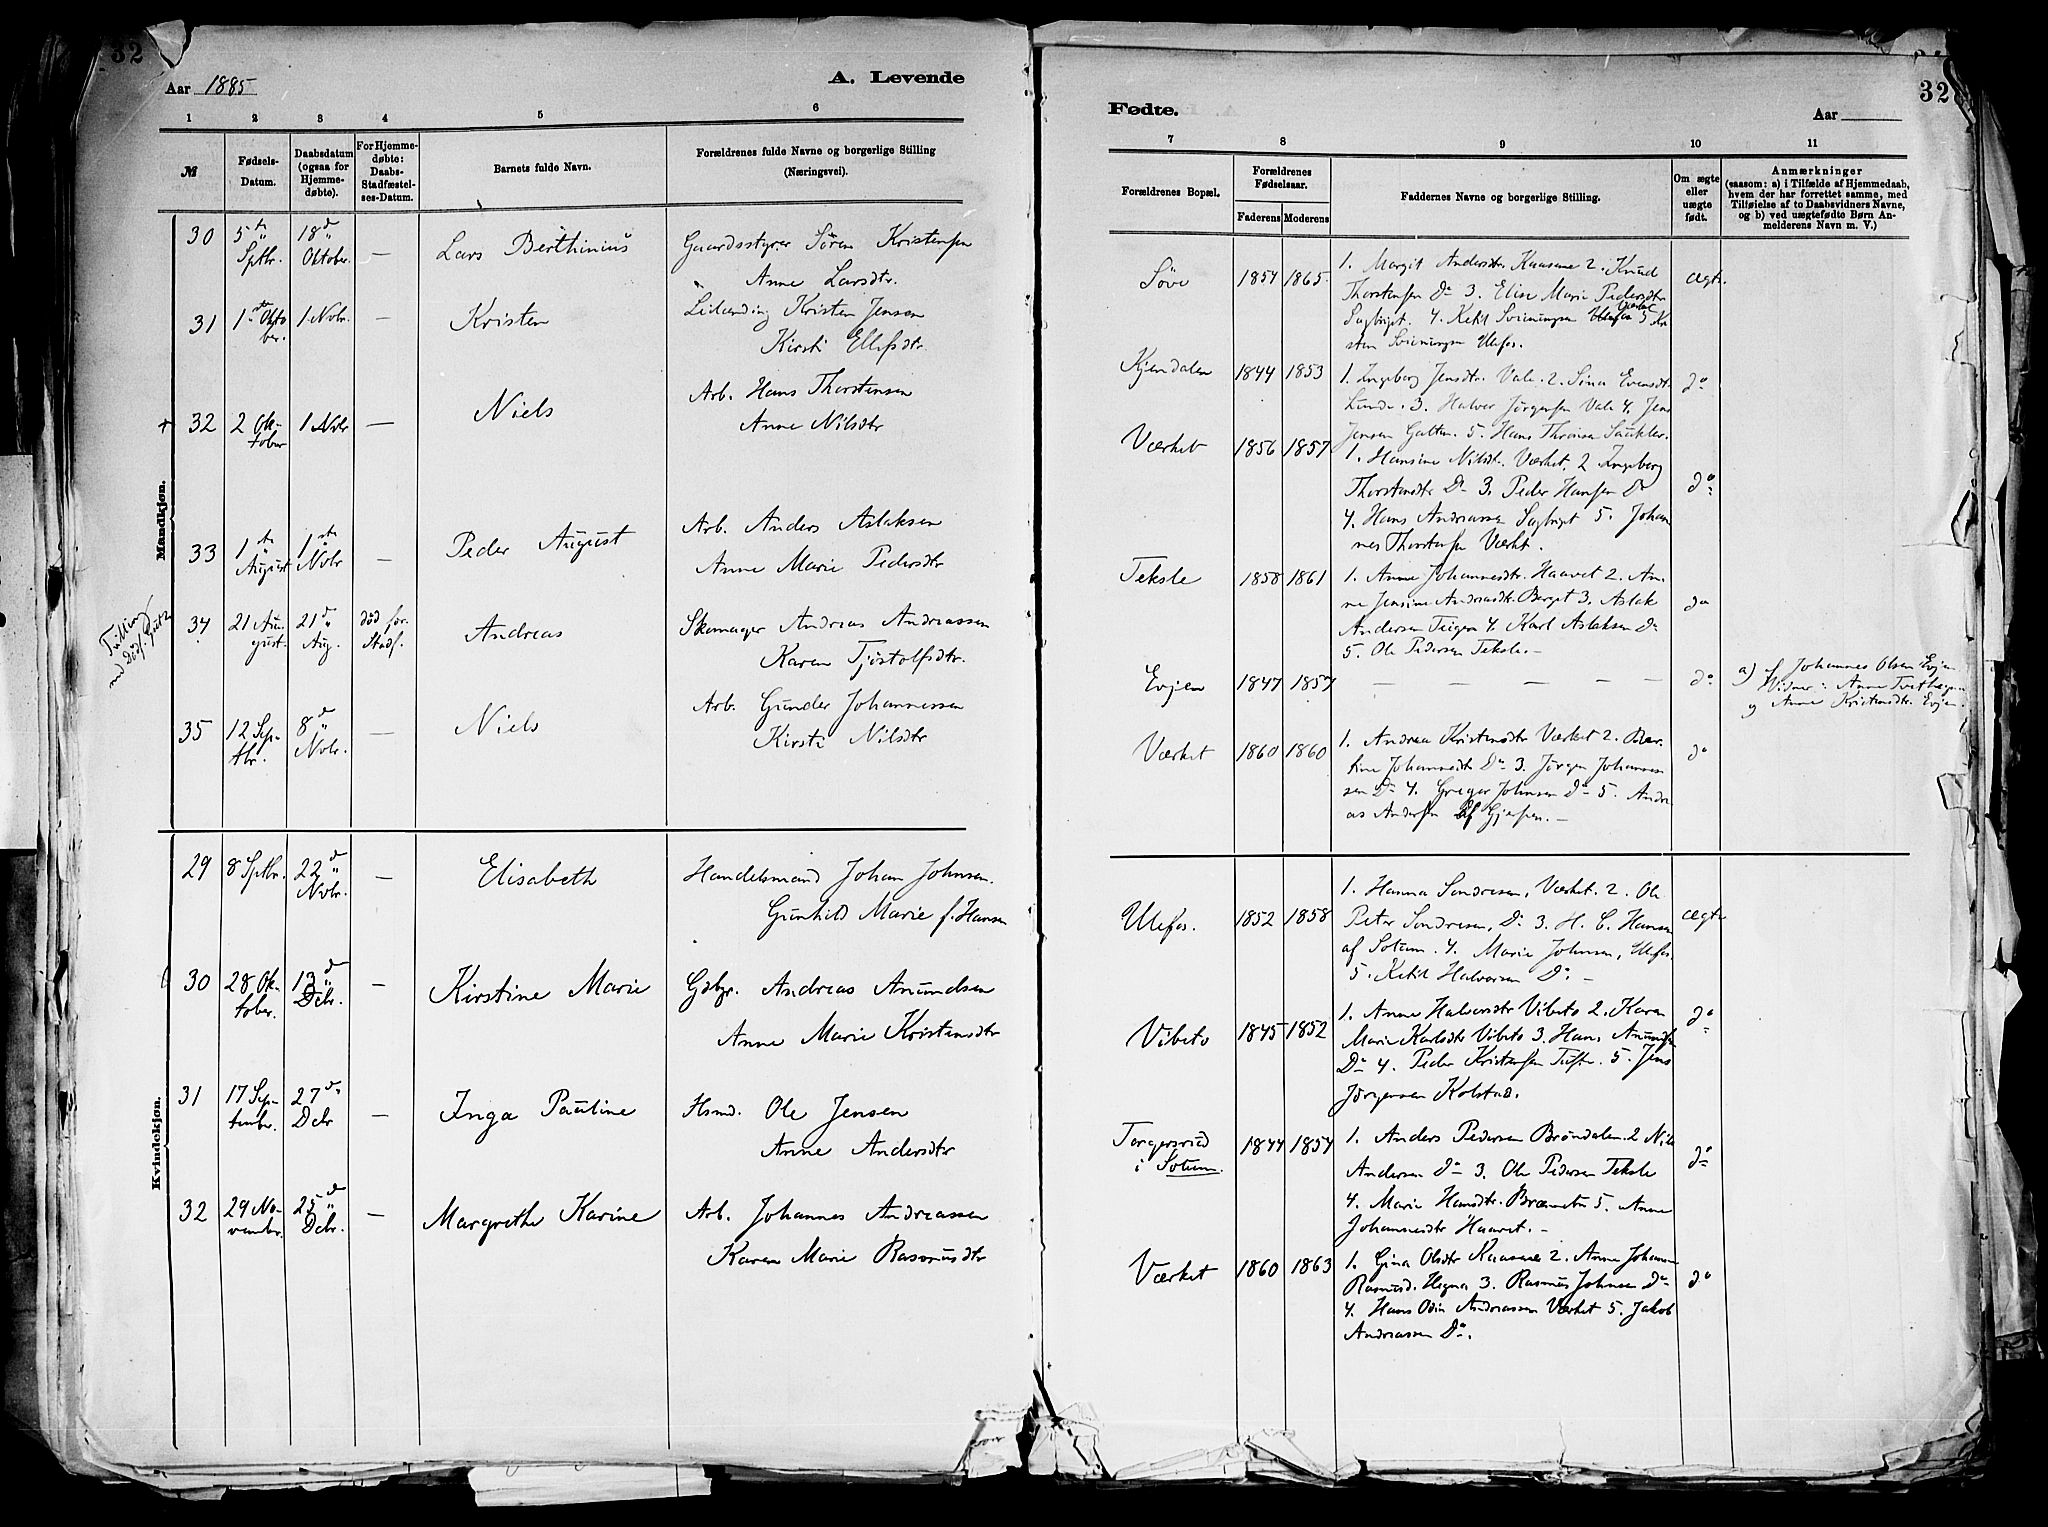 32
Aar 1885
A. Levende
1 2 3 4 5 6
№
Fødsels-
Datum.
Daabsdatum
(ogsaa for
Hjemme-
døbte).
For Hjemme-
døbte:
Daabs-
Stadfæstel-
ses-Datum.
Barnets fulde Navn.
Forældrenes fulde Navne og borgerlige Stilling
(Næringsvei).
Mandkjøn.
30 5te Sptbr. 18de Oktober. — Lars Berthinius Gaardsstyrer Søren Kristensen
Anne Larsdtr.
31 1ste Oktober. 1 Novbr. — Kristen Kristen Jensen
Kirsti Ellefsdtr.
+ 32 2 Oktober 1 Novbr — Niels Arb. Hans Thorstensen
Anne Nilsdtr
33 1ste August 1ste Novbr — Peder August Arb. Anders Aslaksen
Anne Marie Pedersdtr
34 21 August. 21de Aug. død før Stadf. Andreas Skomager Andreas Andreassen
Karen Tjostolfsdtr.
Tvilling
med dødf. Gut
35 12 Septbr. 8de Novbr. — Niels Arb. Gunder Johannessen
Kirsti Nilsdtr
Kvindekjøn.
29 8 Sptbr. 22de Novbr. — Elisabeth Handelsmand Johan Johnsen.
Gunhild Marie f. Hansen
30 28 Oktober. 13de Debr. — Kirstine Marie Gbgr. Andreas Amundsen
Anne Marie Kristensdtr
31 17 September. 27de Debr — Inga Pauline Hsmd. Ole Jensen
Anne Andersdtr
32 29 November. 25de Debr. — Margrethe Karine Arb. Johannes Andreassen
Karen Marie Rasmusdtr
32
Fødte.
Aar
7 8 9 10 11
Forældrenes Bopæl.
Forældrenes
Fødselsaar.
Faderens Moderens
Faddernes Navne og borgerlige Stilling.
Om ægte
eller
uægte
født.
Anmærkninger
(saasom: a) i Tilfælde af Hjemmedaab,
hvem der har forrettet samme, med
Tilføielse af to Daabsvidners Navne,
og b) ved uægtefødte Børn An-
melderens Navn m. V.)
Søve 1857 1865. 1. Margit Andersdtr Kaasene 2. Knud ægte
Thorstensen Do 3. Elise Marie Pedersdtr
4. Ketil 5 Kri
sten Ulefos.
Kjendalen 1844 1853 1. Ingeborg Jensdtr. Vale. 2. Sina Evensdtr. do
Lunde. 3. Halvor Jørgensen Vale 4. Jens
Jensen 5. Hans
Værket 1856 1857 1. Hansine Nilsdtr. Værket, 2 Ingeborg do
Thorstensdtr Do 3. Peder Hansen do
4. Hans Andreassen 5. Johan
nes Thorstensen Værkt.
Teksle 1858 1861 1. Anne Johannesdtr. Haavet 2. An- do
ne Jensine Andreasdtr. Berget 3. Aslak
Andersen Teigen 4. Karl Aslaksen Do
5. Ole Pedersen Teksle. —
Evjen 1847 1857 — — — — — — do a) af Johannes Olsen Evjen
Vidner: Anne
og Anne Kristensdtr. Evjen.
Værket 1860 1860 1. Andrea Kristensdtr Værket 2. Ber- do
tine Johannesdtr Do 3. Jørgen Johannes
sen Do 4. Gregar Johnsen Do 5. Andre
as Andersen af Gjerpen. —
Ulefos. 1852 1858 1. Hanna Sondresen, Værket. 2. Ole ægte
Peter Sondresen, Do 3. H. C. Hansen
af Sotum. 4. Marie Johnsen, Ulefos.
5. Ketil Halvorsen Do —
Vibeto 1845 1852 1. Anne Halvorsdtr Vibeto 2. Karen do
Marie Karlsdtr Vibeto 3. Hans Amundsen
Do 4. Peder Kristensen Tufte. 5. Jens
Jørgensen Kolstad.
Torgersrud 1844 1857 1. Anders Pedersen Brøndalen. 2 Nils do
i Sotum. Andersen Do 3. Ole Pedersen Teksle
4. Marie Hansdtr. 5. Anne
Johannesdtr Haavet. —
Værket 1860 1863 1. Gina Olsdtr Kaasene 2. Anne Johanne do
Rasmusd. Hegna 3. Rasmus Johnsen Do
4. Hans Odin Andreassen Værket 5. Jakob
Andreassen Do.